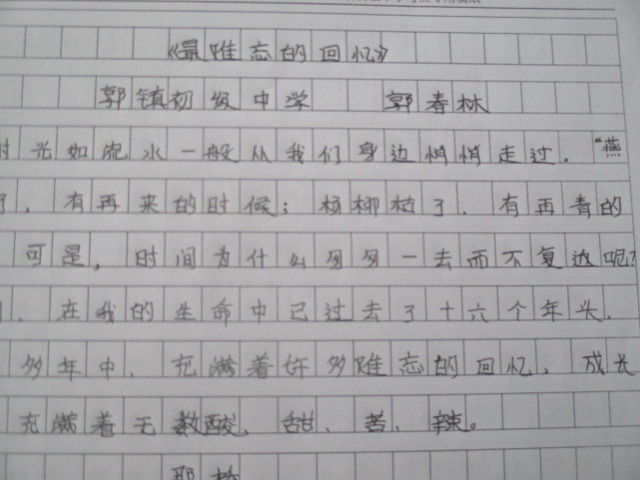 《最难忘的回忆》
郭镇初级中学 郭春林
时光如流水一般从我们身边悄悄走过。“燕
了，有再来的时候；杨柳枯了，有再青的
可是，时间为什么匆匆一去而不复返呢？
，在我的生命中已过去了十六个年头，
多年中，充满着许多难忘的回忆，成长
充满着无数酸、甜、苦、辣。
那